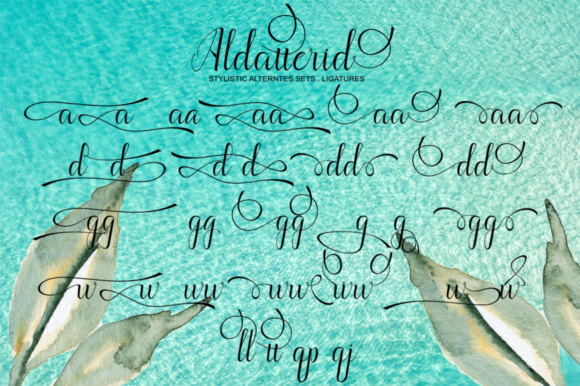 Aldatterid
STYLISTIC ALTERNTES SETS . LIGATURES
a a aa aa aa aa
d d d d dd dd
gg gg gg g g gg
w w ww ww ww w w
ll tt qp qj